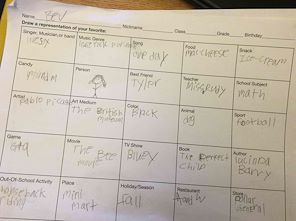 Name: Bev Nickname Class Grade Birthday
Draw a representation of your favorite:
Singer, Musician, or band
Music Genre
Song
one day
Food
mac cheese
Snack
Ice-cream
Candy
Person
Best Friend
Tyler
Teacher
School Subject
math
Artist
pablo picasso
Art Medium
The British museum
Color
Black
Animal
dog
Sport
football
Game
Movie
The Bee movie
TV Show
Bluey
Book
The perfect child
Author
lucinda Barry
Out-Of-School Activity
horseback riding
Place
mini mart
Holiday/Season
fall
Restaurant
Store
Dollar general